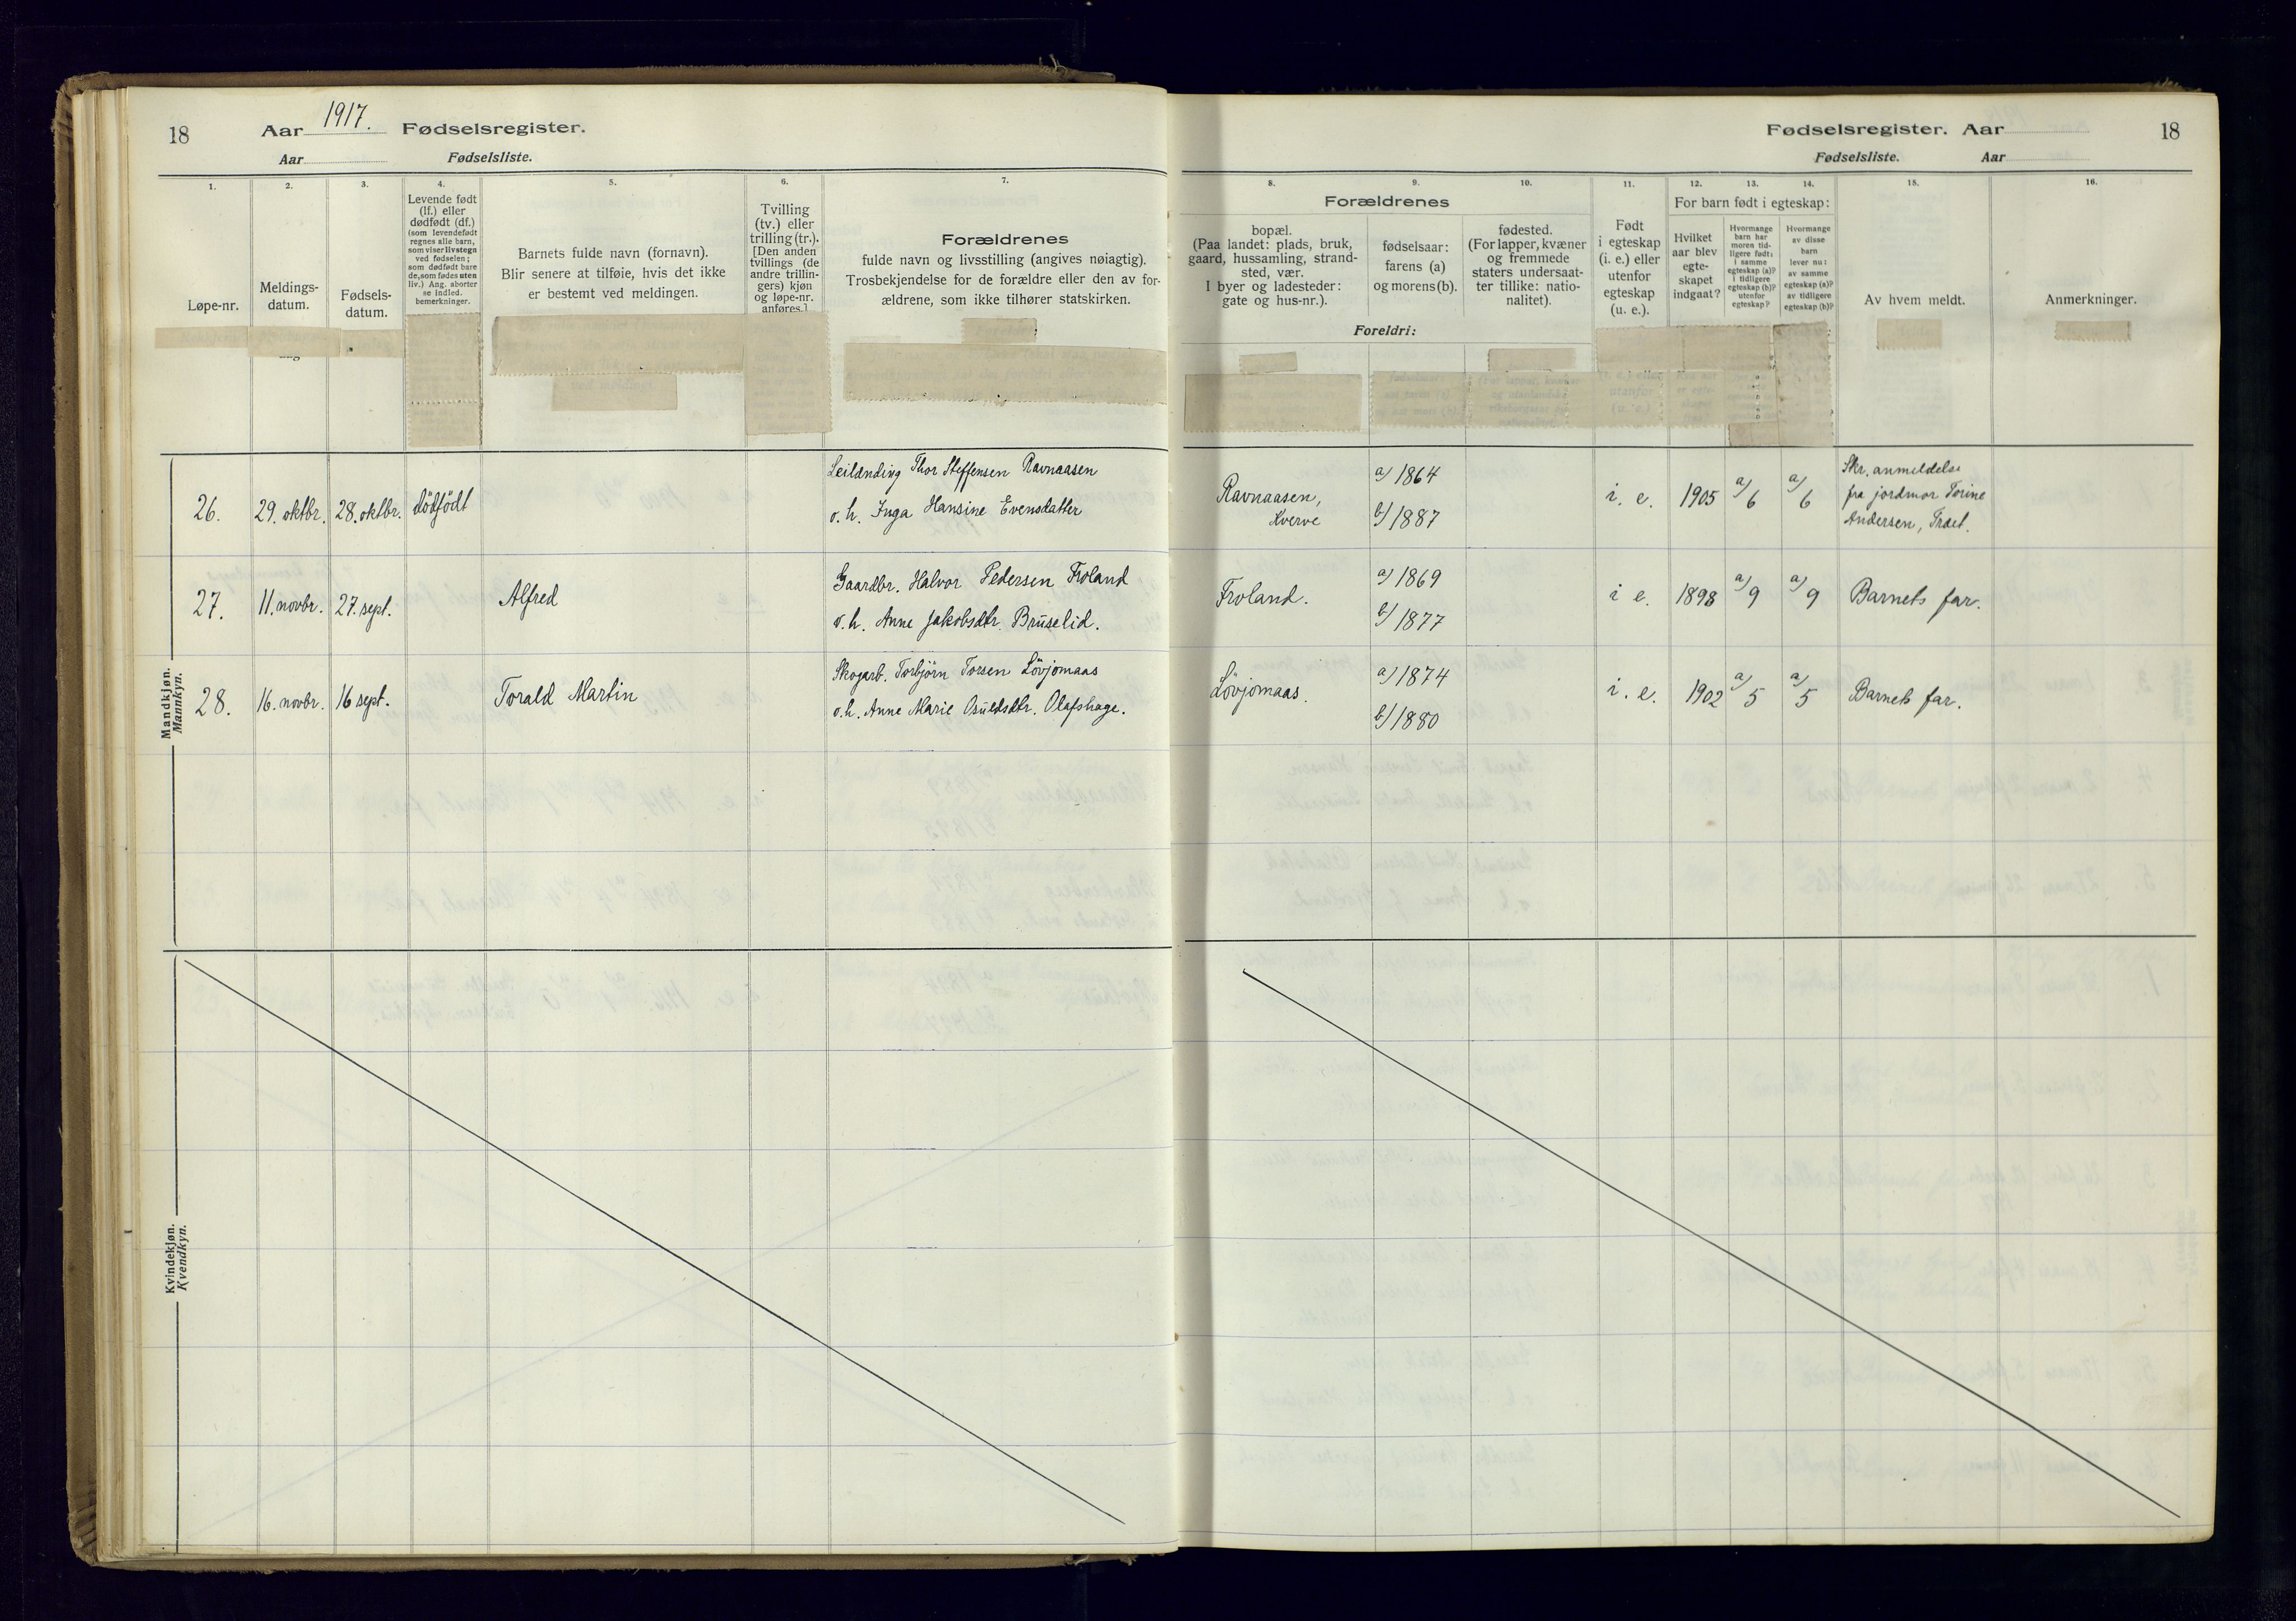 18 Aar 1917. Fødselsregister.
Aar Fødselsliste.
1. 2. 3. 4. 5. 6. 7.
Løpe-nr.
Meldings-
datum.
Fødsels-
datum.
Levende født
(lf.) eller
dødfødt (df.)
(som levendefødt
regnes alle barn,
som viser livstegn
ved fødselen;
som dødfødt bare
de, som fødes uten
liv.) Ang. aborter
se indled.
bemerkninger.
Barnets fulde navn (fornavn).
Blir senere at tilføie, hvis det ikke
er bestemt ved meldingen.
Tvilling
(tv.) eller
trilling (tr.).
[Den anden
tvillings (de
andre trillin-
gers) kjøn
og løpe-nr.
anføres.]
Forældrenes
fulde navn og livsstilling (angives nøiagtig).
Trosbekjendelse for de forældre eller den av for-
ældrene, som ikke tilhører statskirken.
Mandkjøn.
Mannkyn.
26. 29. oktbr. 28. oktbr. dödfödt Leilænding Thor Steffensen Ravnaasen
o. h. Inga Hansine Evensdatter
27. 11. novbr. 27. sept. Alfred Gaardbr. Halvor Pedersen Froland
o. h. Anne Jakobsdtr. Bruselid.
28. 16. novbr. 16 sept. Torald Martin Skogarb. Torbjörn Torsen Lövjomaas
o. h. Anne Marie Osuldsdtr. Olafshage.
Kvindekjøn.
Kvendkyn.
Fødselsregister. Aar 18
Fødselsliste. Aar
8. 9. 10. 11. 12. 13. 14. 15. 16.
Forældrenes
bopæl.
(Paa landet: plads, bruk,
gaard, hussamling, strand-
sted, vær.
I byer og ladesteder:
gate og hus-nr.).
fødselsaar:
farens (a)
og morens (b).
fødested.
(For lapper, kvæner
og fremmede
staters undersaat-
ter tillike: natio-
nalitet).
Foreldri:
Født
i egteskap
(i. e.) eller
utenfor
egteskap
(u. e.).
For barn født i egteskap:
Hvilket
aar blev
egte-
skapet
indgaat?
Hvormange
barn har
moren tid-
ligere født:
i samme
egteskap (a)?
i tidligere
egteskap (b)?
utenfor
egteskap?
Hvormange
av disse
barn
lever nu:
av samme
egteskap (a)?
av tidligere
egteskap (b)?
Av hvem meldt.
Anmerkninger.
Ravnaasen,
Kverve
a) 1864
b) 1887
i. e. 1905 a) 6 a) 6
Skr. anmeldelse
fra jordmor Torine
Andersen, Træt.
Froland.
a) 1869
b) 1877
i e. 1898 a) 9 a) 9 Barnets far.
Lövjomaas.
a) 1874
b) 1880
i. e. 1902 a) 5 a) 5 Barnets far.